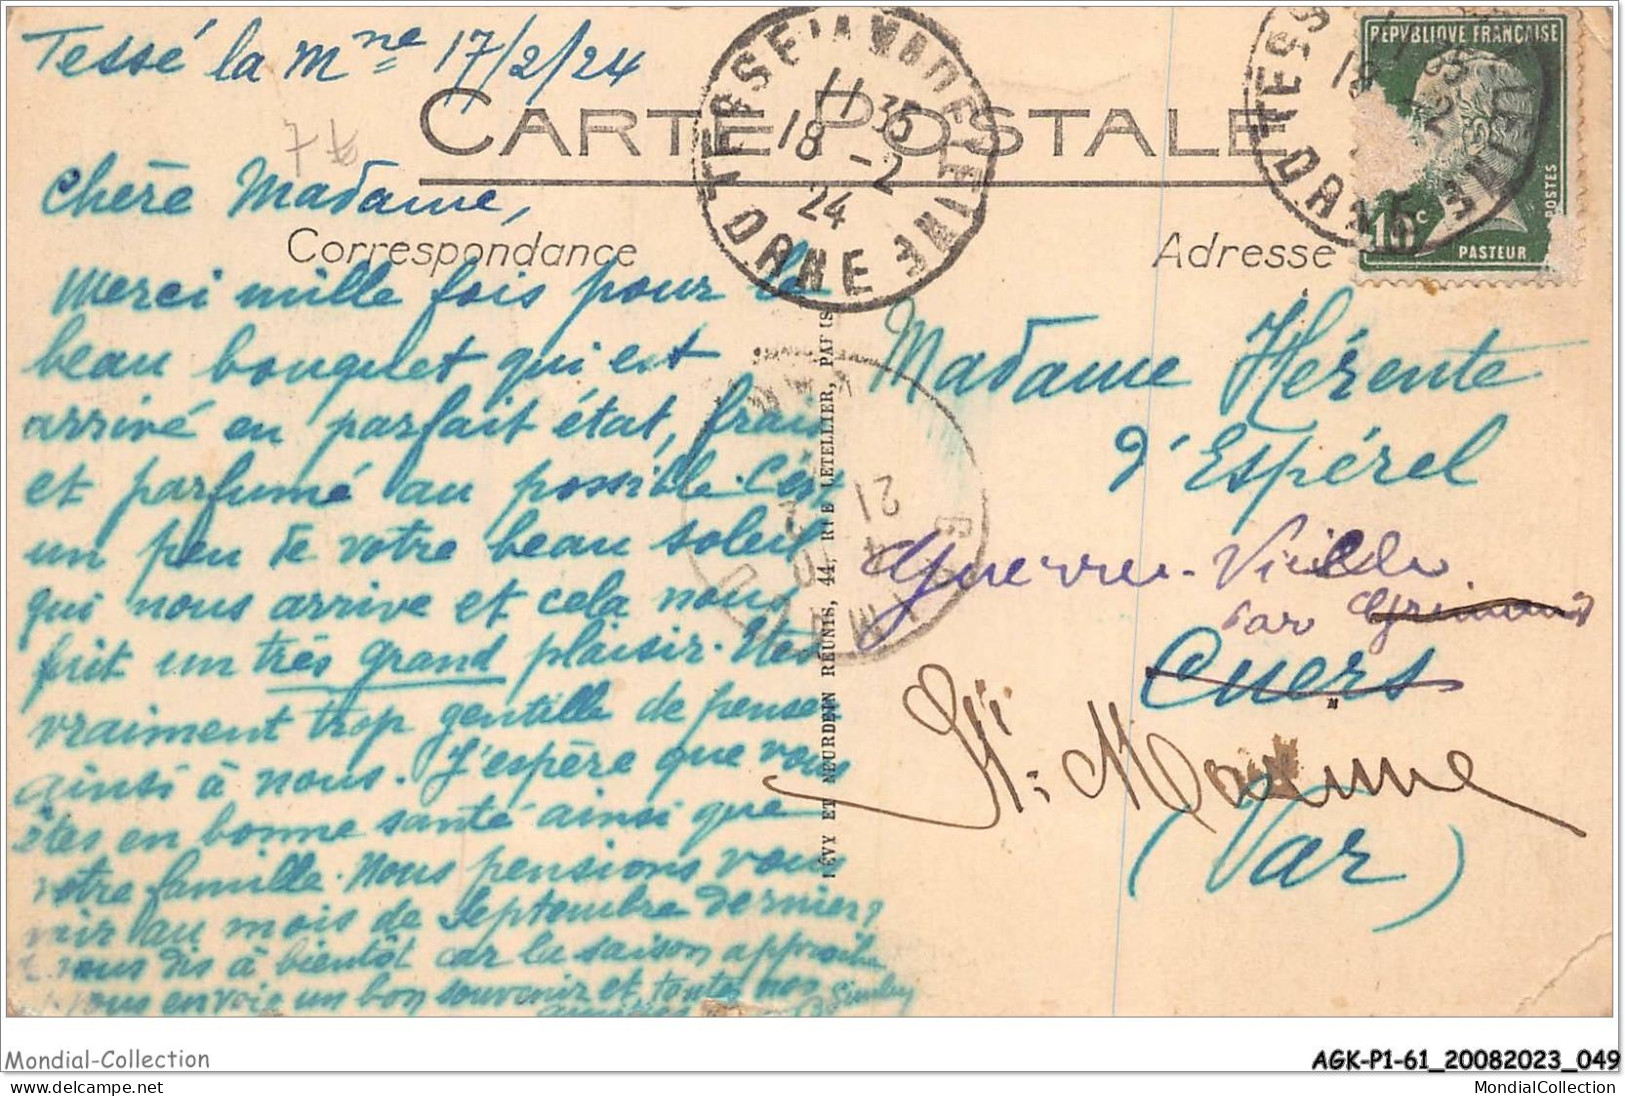 Tessé la Mne 17/2/24
CARTE POSTALE
Chère Madame,
Correspondance
Merci mille fois pour le
beau bouquet qui est
arrivé en parfait état, frais
et parfumé au possible. C'est
un peu de votre beau soleil
qui nous arrive et cela nous
fait un très grand plaisir. Etes
vraiment trop gentille de penser
ainsi à nous. J'espère que vous
êtes en bonne santé ainsi que
votre famille. Nous pensions vous
voir au mois de Septembre dernier?
vous dis à bientôt car la saison approche
vous envoie un bon souvenir et toutes nos
amitiés
TESSE LA MADELEINE
11 35
18 -2
24
ORNE
LÉVY ET NEURDEIN RÉUNIS, 44, RUE LETELLIER, PARIS
VAR
21
Adresse
REPVBLIQVE FRANÇAISE
POSTES
15c
PASTEUR
Madame Hérente
d'Espérel
Guerre-Vieille
par Grimaud
Cuers
Ste Maxime
(Var)
Mondial-Collection
AGK-P1-61_20082023_049
www.delcampe.net
MondialCollection